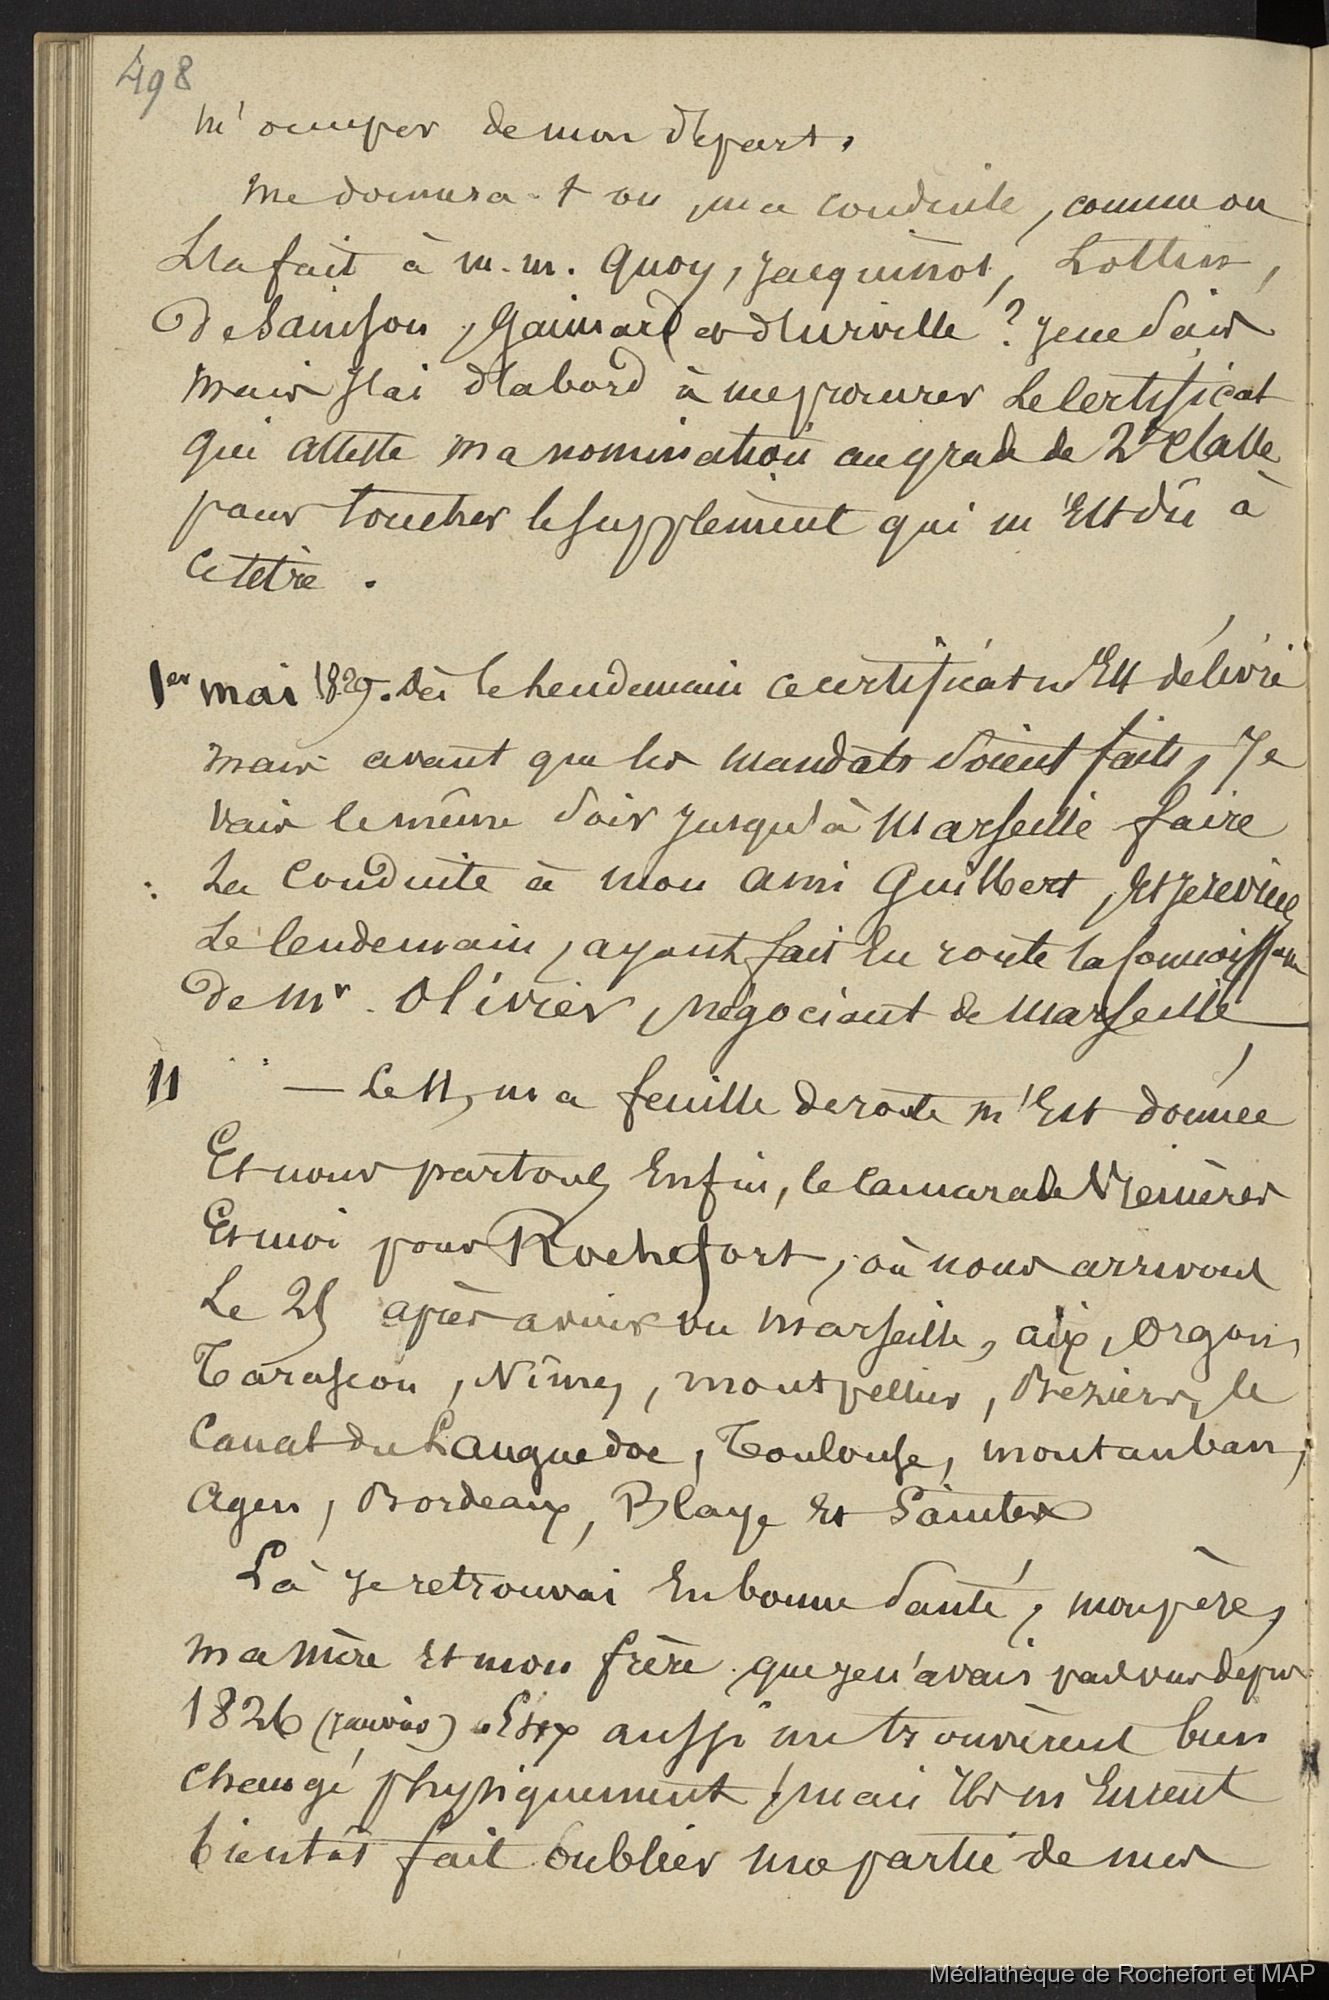 498
m'occuper de mon départ.
Me donnera-t-on ma conduite, comme on
L'a fait à m.m. Quoy, Jacquinot, Lottin,
de Sainson, Gaimard et d'Urville ? Je ne sais
mais J'ai d'abord à me procurer Le Certificat
qui atteste ma nomination au grade de 2e Classe
pour toucher le supplément qui m'Est dû à
ce titre.
1er mai 1829. Dès le lendemain ce certificat m'Est délivré
mais avant que les mandats soient faits, Je
vais le même soir jusqu'à Marseille faire
La Conduite à mon ami Guilbert, Et je revins
Le lendemain, ayant fait En route la connoissance
de Mr. Olivier, négociant de Marseille
11 — Le 11, ma feuille de route m'Est donnée
Et nous partons Enfin, le Camarade
Et moi pour Rochefort, où nous arrivons
Le 25 après avoir vu Marseille, aix, Orgon,
Tarascon, Nîmes, Montpellier, Béziers, le
Canal du Languedoc, Toulouse, Montauban,
Agen, Bordeaux, Blaye Et Saintes
Là Je retrouvai En bonne santé, mon père,
ma mère Et mon frère que je n'avais pas vus depuis
1826 (janvier) Eux aussi me trouvèrent bien
changé physiquement, mais Ils m'Eurent
bientôt fait oublier ma partie de mes
Médiathèque de Rochefort et MAP